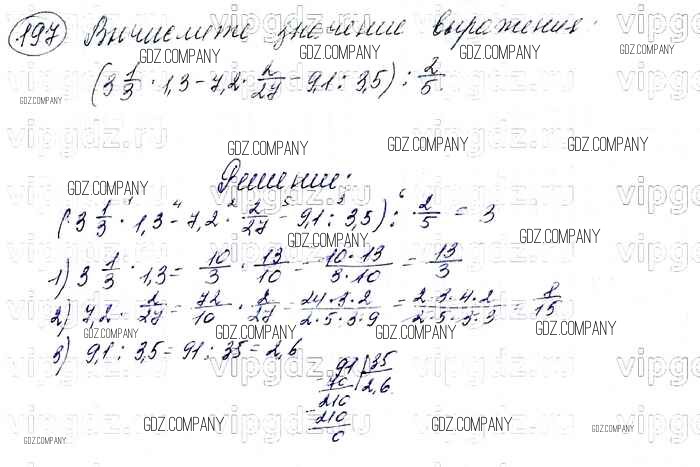 197 Вычислете значение выражения:
(3 1/3 · 1,3 - 7,2 · 2/27 - 9,1 : 3,5) : 2/5
Решение:
(3 1/3 · 1,3 - 7,2 · 2/27 - 9,1 : 3,5) : 2/5 = 3
1) 3 1/3 · 1,3 = 10/3 · 13/10 = 10·13/3·10 = 13/3
2) 7,2 · 2/27 = 72/10 · 2/27 = 24·3·2/2·5·3·9 = 2·3·4·2/2·5·3·3 = 8/15
3) 9,1 : 3,5 = 91 : 35 = 2,6
91 | 35
70 | 2,6
210
210
0
GDZ.COMPANY
vipgdz